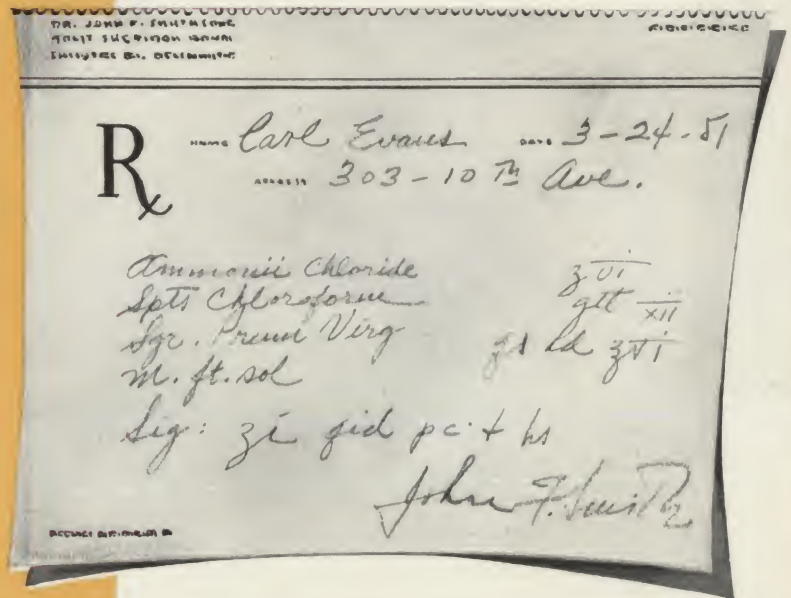 DR. JOHN F.
NAME Carl Evans DATE 3-24-51
ADDRESS 303-10 Th Ave.
Rx
Ammonii Chloride ʒ vi
Spts Chloroform gtt xii
Syr. Prun Virg qs ad ℥ vi
M. ft. sol
Sig: ʒ i qid pc + hs
John F.